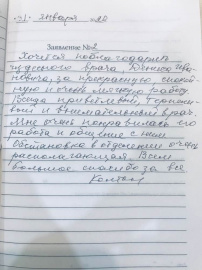 «31» января 20
Заявление №2
Хочется поблагодарить
чудесного врача, Дениса Ива-
новича, за прекрасную, спокой-
ную и очень мягкую работу.
Всегда приветливый, терпели-
вый и внимательный врач.
Мне очень понравилась его
работа и общение с ним
Обстановка в отделении очень
располагающая. Всем
большое спасибо за всё